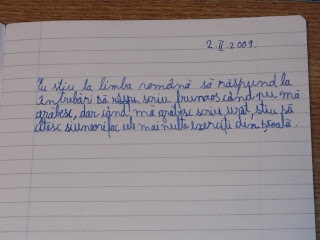 2.II.2009.
Eu știu la limba română să răspund la
întrebări să răspu scriu frumos când nu mă
grăbesc, dar când mă grăbesc scriu urât, știu să
citesc și uneori fac cele mai multe exerciții din școală.